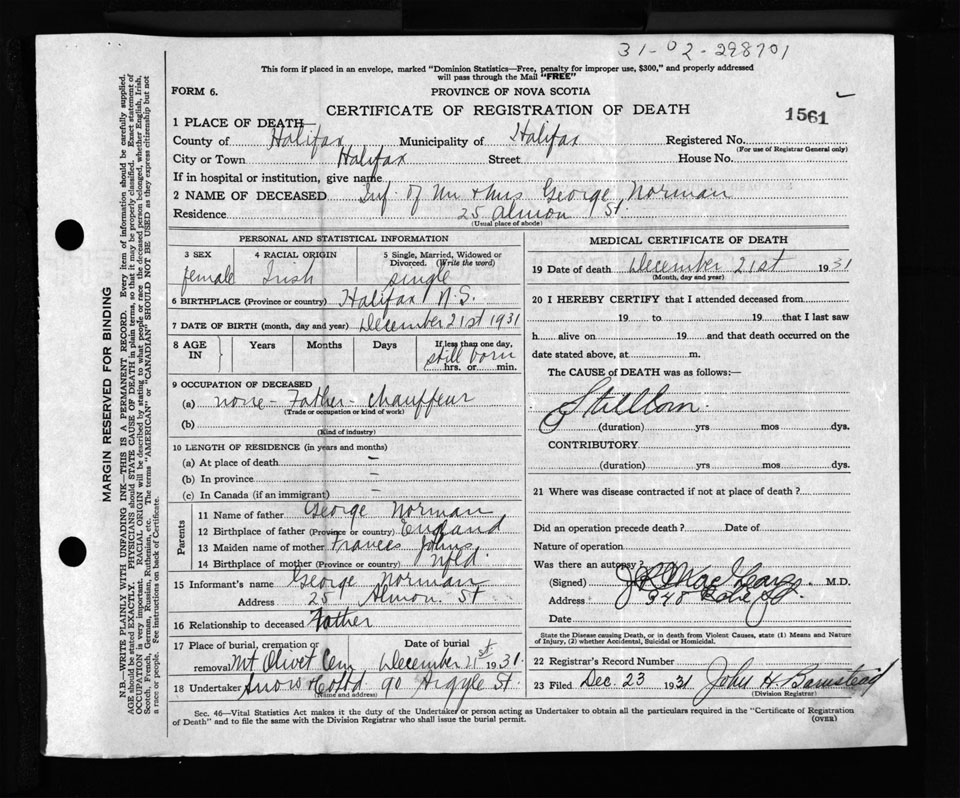 31-02-298701
This form if placed in an envelope, marked "Dominion Statistics—Free, penalty for improper use, $300," and properly addressed
will pass through the Mail "FREE"
FORM 6.
PROVINCE OF NOVA SCOTIA
CERTIFICATE OF REGISTRATION OF DEATH
1561
1 PLACE OF DEATH—
County of Halifax Municipality of Halifax Registered No.
(For use of Registrar General only)
City or Town Halifax Street House No.
If in hospital or institution, give name
2 NAME OF DECEASED Inf. of Mr & Mrs George Norman
Residence 25 Almon St.
(Usual place of abode)
PERSONAL AND STATISTICAL INFORMATION
3 SEX 4 RACIAL ORIGIN 5 Single, Married, Widowed or
Divorced. (Write the word)
female Irish single
6 BIRTHPLACE (Province or country) Halifax N.S.
7 DATE OF BIRTH (month, day and year) December 21st 1931
8 AGE IN Years Months Days If less than one day,
still born
hrs. or min.
9 OCCUPATION OF DECEASED
(a) none - Father - chauffeur
(Trade or occupation or kind of work)
(b)
(Kind of industry)
10 LENGTH OF RESIDENCE (in years and months)
(a) At place of death –
(b) In province –
(c) In Canada (if an immigrant) –
Parents
11 Name of father George Norman
12 Birthplace of father (Province or country) England
13 Maiden name of mother Frances Johns
14 Birthplace of mother (Province or country) Nfld.
15 Informant's name George Norman
Address 25 Almon St
16 Relationship to deceased Father
17 Place of burial, cremation or Date of burial
removal Mt Olivet Cem December 21st 1931.
18 Undertaker Snow & Co Ltd 90 Argyle St.
(Name and address)
MEDICAL CERTIFICATE OF DEATH
19 Date of death December 21st 1931
(Month, day and year)
20 I HEREBY CERTIFY that I attended deceased from
19 to 19 that I last saw
h alive on 19 and that death occurred on the
date stated above, at m.
The CAUSE of DEATH was as follows:—
Stillborn.
(duration) yrs mos dys.
CONTRIBUTORY
(duration) yrs mos dys.
21 Where was disease contracted if not at place of death?
Did an operation precede death? Date of
Nature of operation
Was there an autopsy?
(Signed) M.D.
Address 340
Date
State the Disease causing Death, or in death from Violent Causes, state (1) Means and Nature
of Injury, (2) whether Accidental, Suicidal or Homicidal.
22 Registrar's Record Number
23 Filed Dec. 23 1931 John H Barnstead
(Division Registrar)
Sec. 46—Vital Statistics Act makes it the duty of the Undertaker or person acting as Undertaker to obtain all the particulars required in the "Certificate of Registration
of Death" and to file the same with the Division Registrar who shall issue the burial permit.
(OVER)
MARGIN RESERVED FOR BINDING
N.B.—WRITE PLAINLY WITH UNFADING INK—THIS IS A PERMANENT RECORD. Every item of information should be carefully supplied.
AGE should be stated EXACTLY. PHYSICIANS should STATE CAUSE OF DEATH in plain terms, so that it may be properly classified. Exact statement of
OCCUPATION is very important. RACIAL ORIGIN will be described by stating to what people or race the deceased person belonged, whether English, Irish,
Scotch, French, German, Russian, Ruthenian, etc. The terms "AMERICAN" or "CANADIAN" SHOULD NOT BE USED as they express citizenship but not
a race or people. See instructions on back of Certificate.